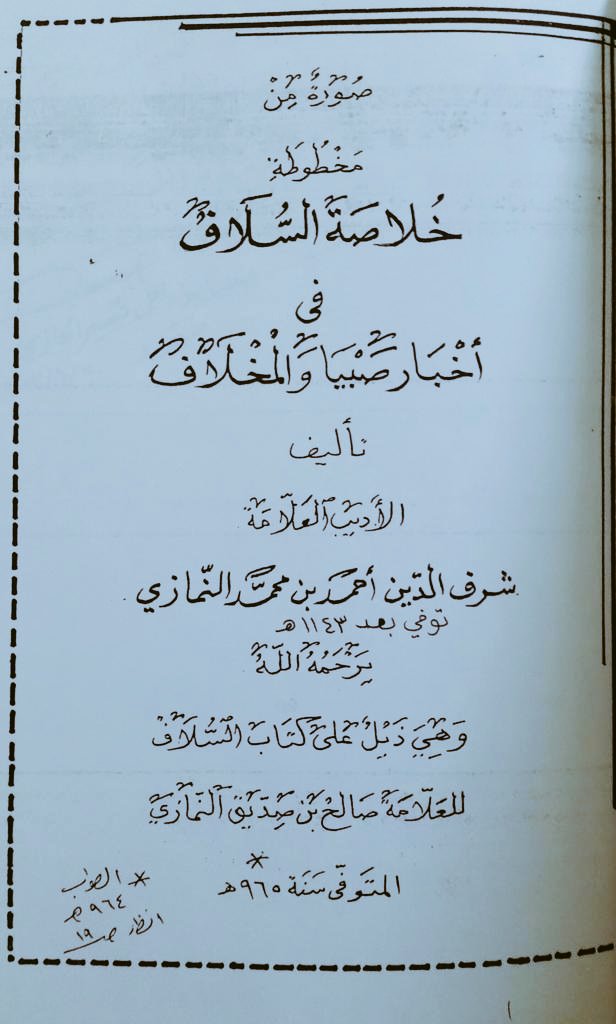 صُورَةٌ مِنْ
مَخْطُوطَةِ
خُلاصَةُ السُّلَافِ
في
أَخْبَارِ صَبْيَا وَالْمِخْلَافِ
تأليف
الأديب العَلّامَة
شرف الدّين أحمد بن محمّد النّمازي
توفي بعد ١١٤٣ هـ
يَرْحَمُهُ اللّهُ
وَهِيَ ذَيْلٌ عَلَى كتَابِ السُّلَافِ
للعَلّامَة صَالِح بْن صِدِّيق النَّمَازِيّ
المتوَفّى سَنَة ٩٦٥ هـ *
* الصواب
٩٦٤ هـ
انظر ص ١٩
١